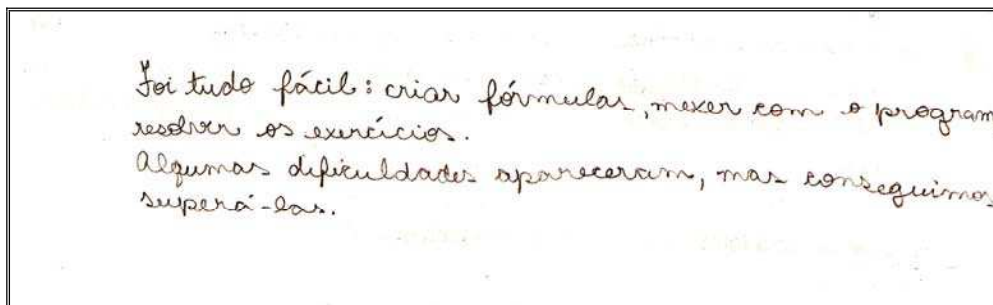 Foi tudo fácil: criar fórmulas, mexer com o program
resolver os exercícios.
Algumas dificuldades apareceram, mas conseguimos
superá-las.